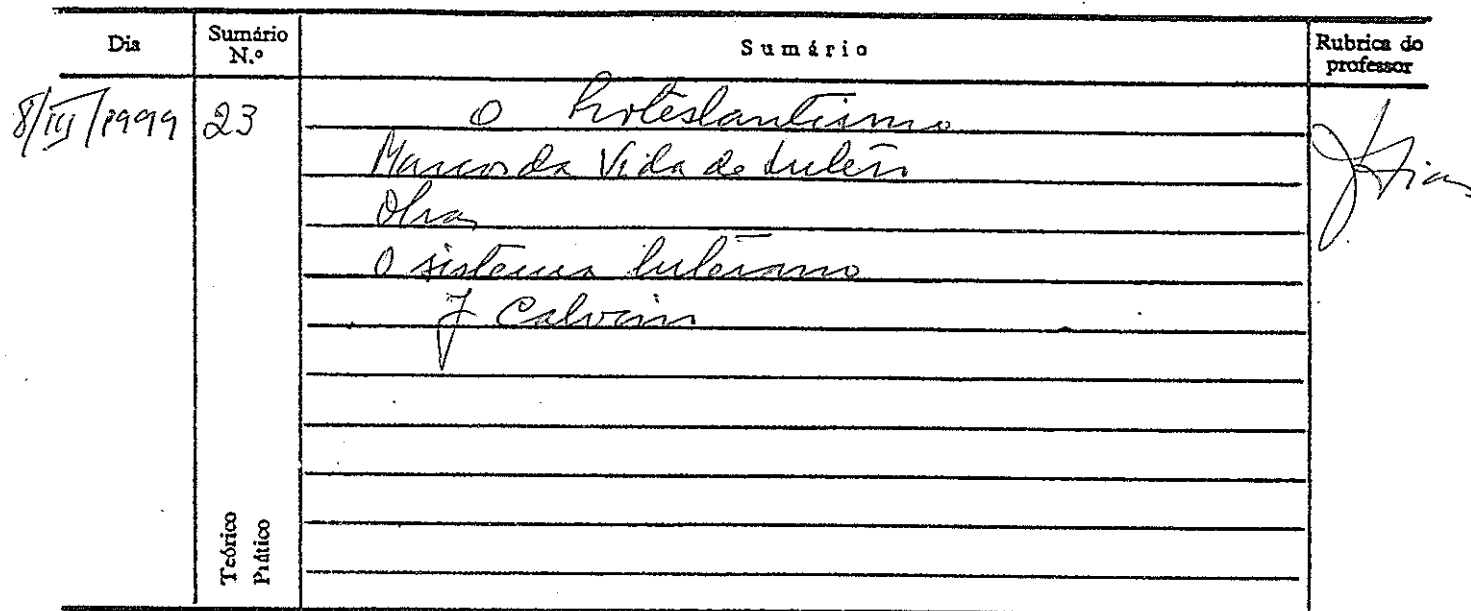 Dia Sumário N.º Sumário Rubrica do professor
8/III/1999 23 O Protestantismo
Marcos da Vida de Lutero
Obras
O sistema luterano
J Calvino
Teórico
Prático